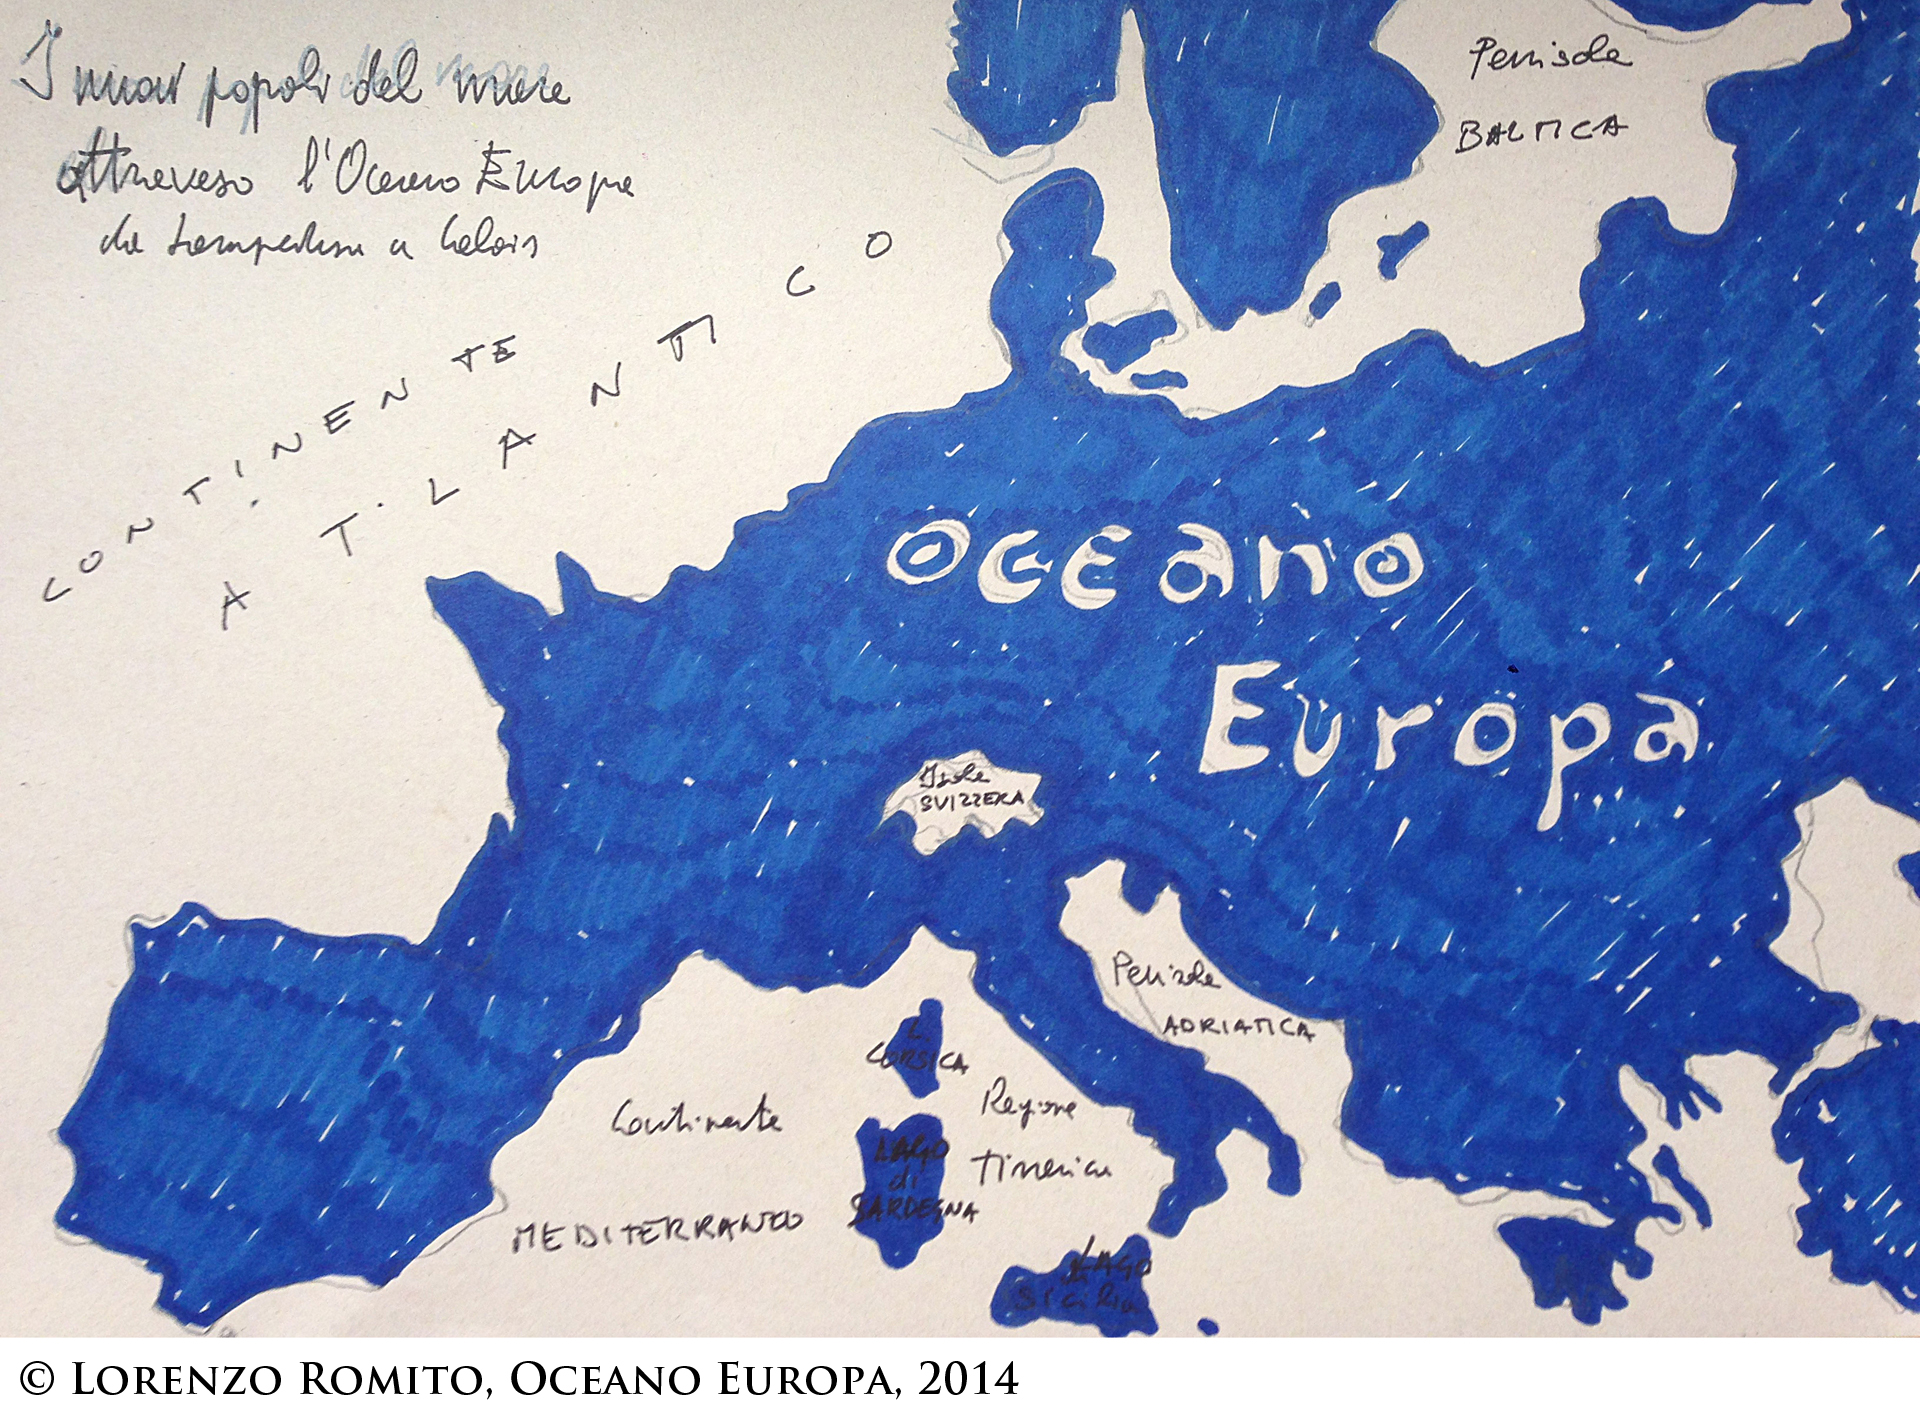 I nuovi popoli del mare
attraveso l'Oceano Europa
da Lampedusa a Calais
CONTINENTE
ATLANTICO
Penisola
BALTICA
Oceano
Europa
Isola
SVIZZERA
Penisola
ADRIATICA
L.
CORSICA
Continente
MEDITERRANEO
LAGO
di
SARDEGNA
Regione
Tirrenica
LAGO
di
Sicilia
© LORENZO ROMITO, OCEANO EUROPA, 2014